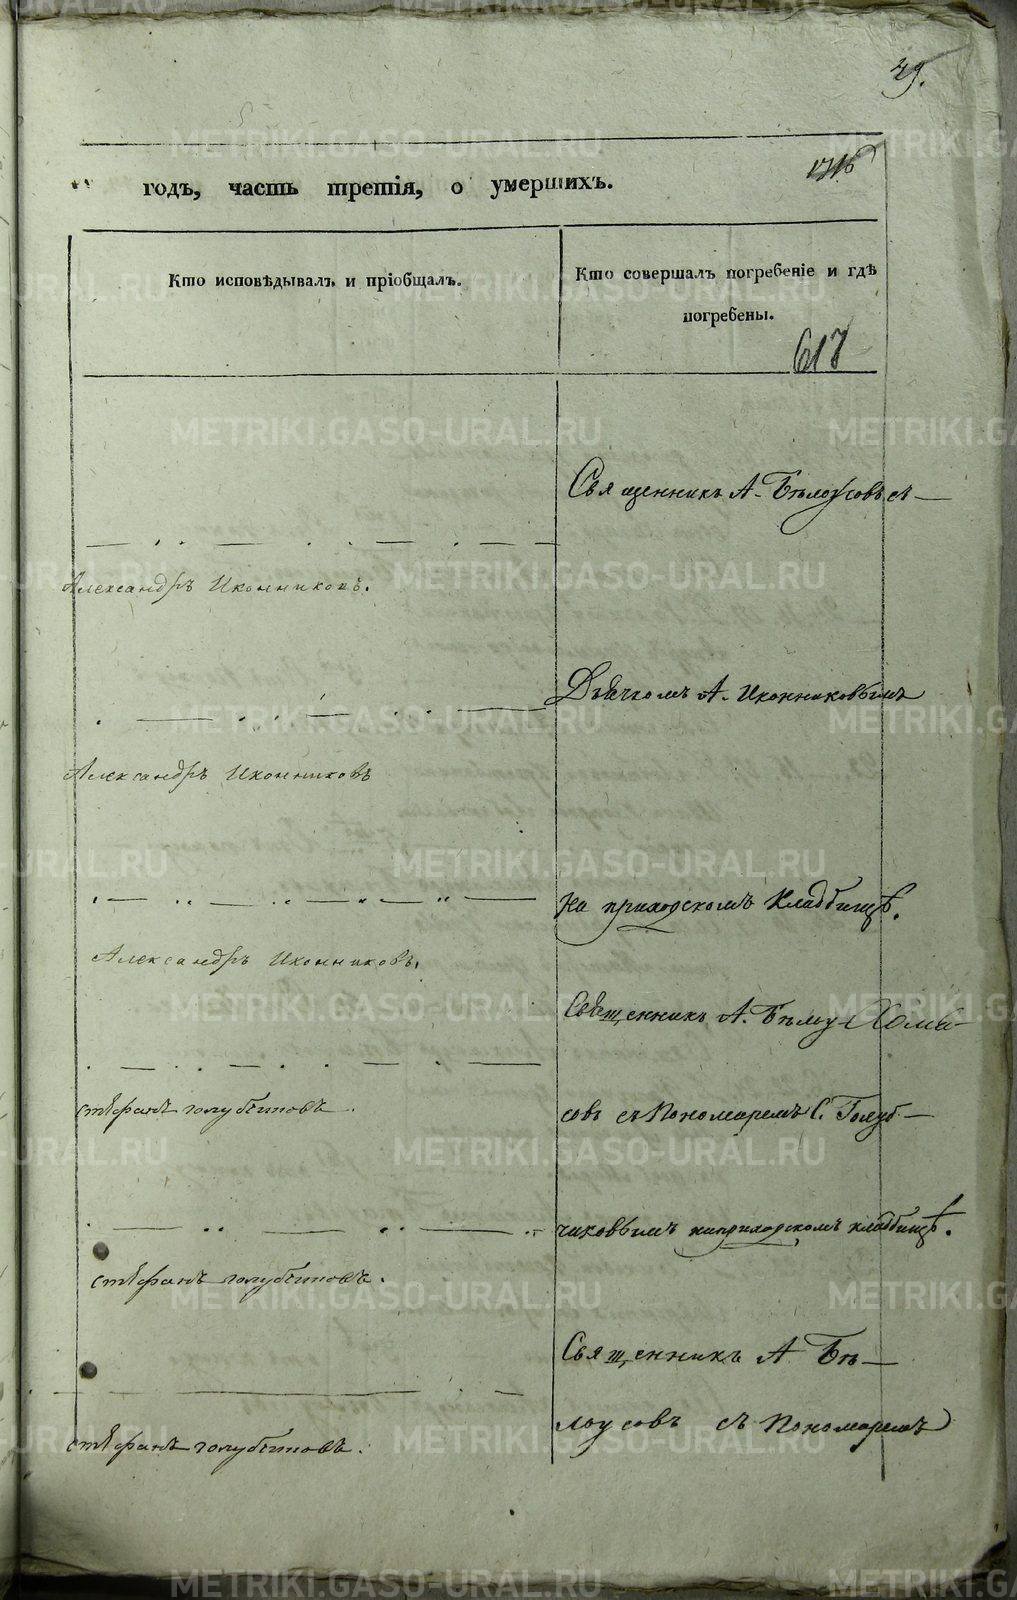 49.
годъ, часть третія, о умершихъ.
Кто исповѣдывалъ и пріобщалъ.
Кто совершалъ погребеніе и гдѣ
погребены.
617
Священникъ А. Бѣлоусовъ съ —
Александръ Иконниковъ.
Дьячкомъ А. Иконниковымъ
Александръ Иконниковъ
на приходскомъ кладбищѣ.
Александръ Иконниковъ.
Священникъ А. Бѣлоу-
Стефанъ Голубчиковъ.
совъ съ Пономаремъ С. Голуб —
чиковымъ на приходскомъ кладбищѣ.
Стефанъ Голубчиковъ.
Священникъ А Бѣ —
лоусовъ съ Пономаремъ
Стефанъ Голубчиковъ.
METRIKI.GASO-URAL.RU